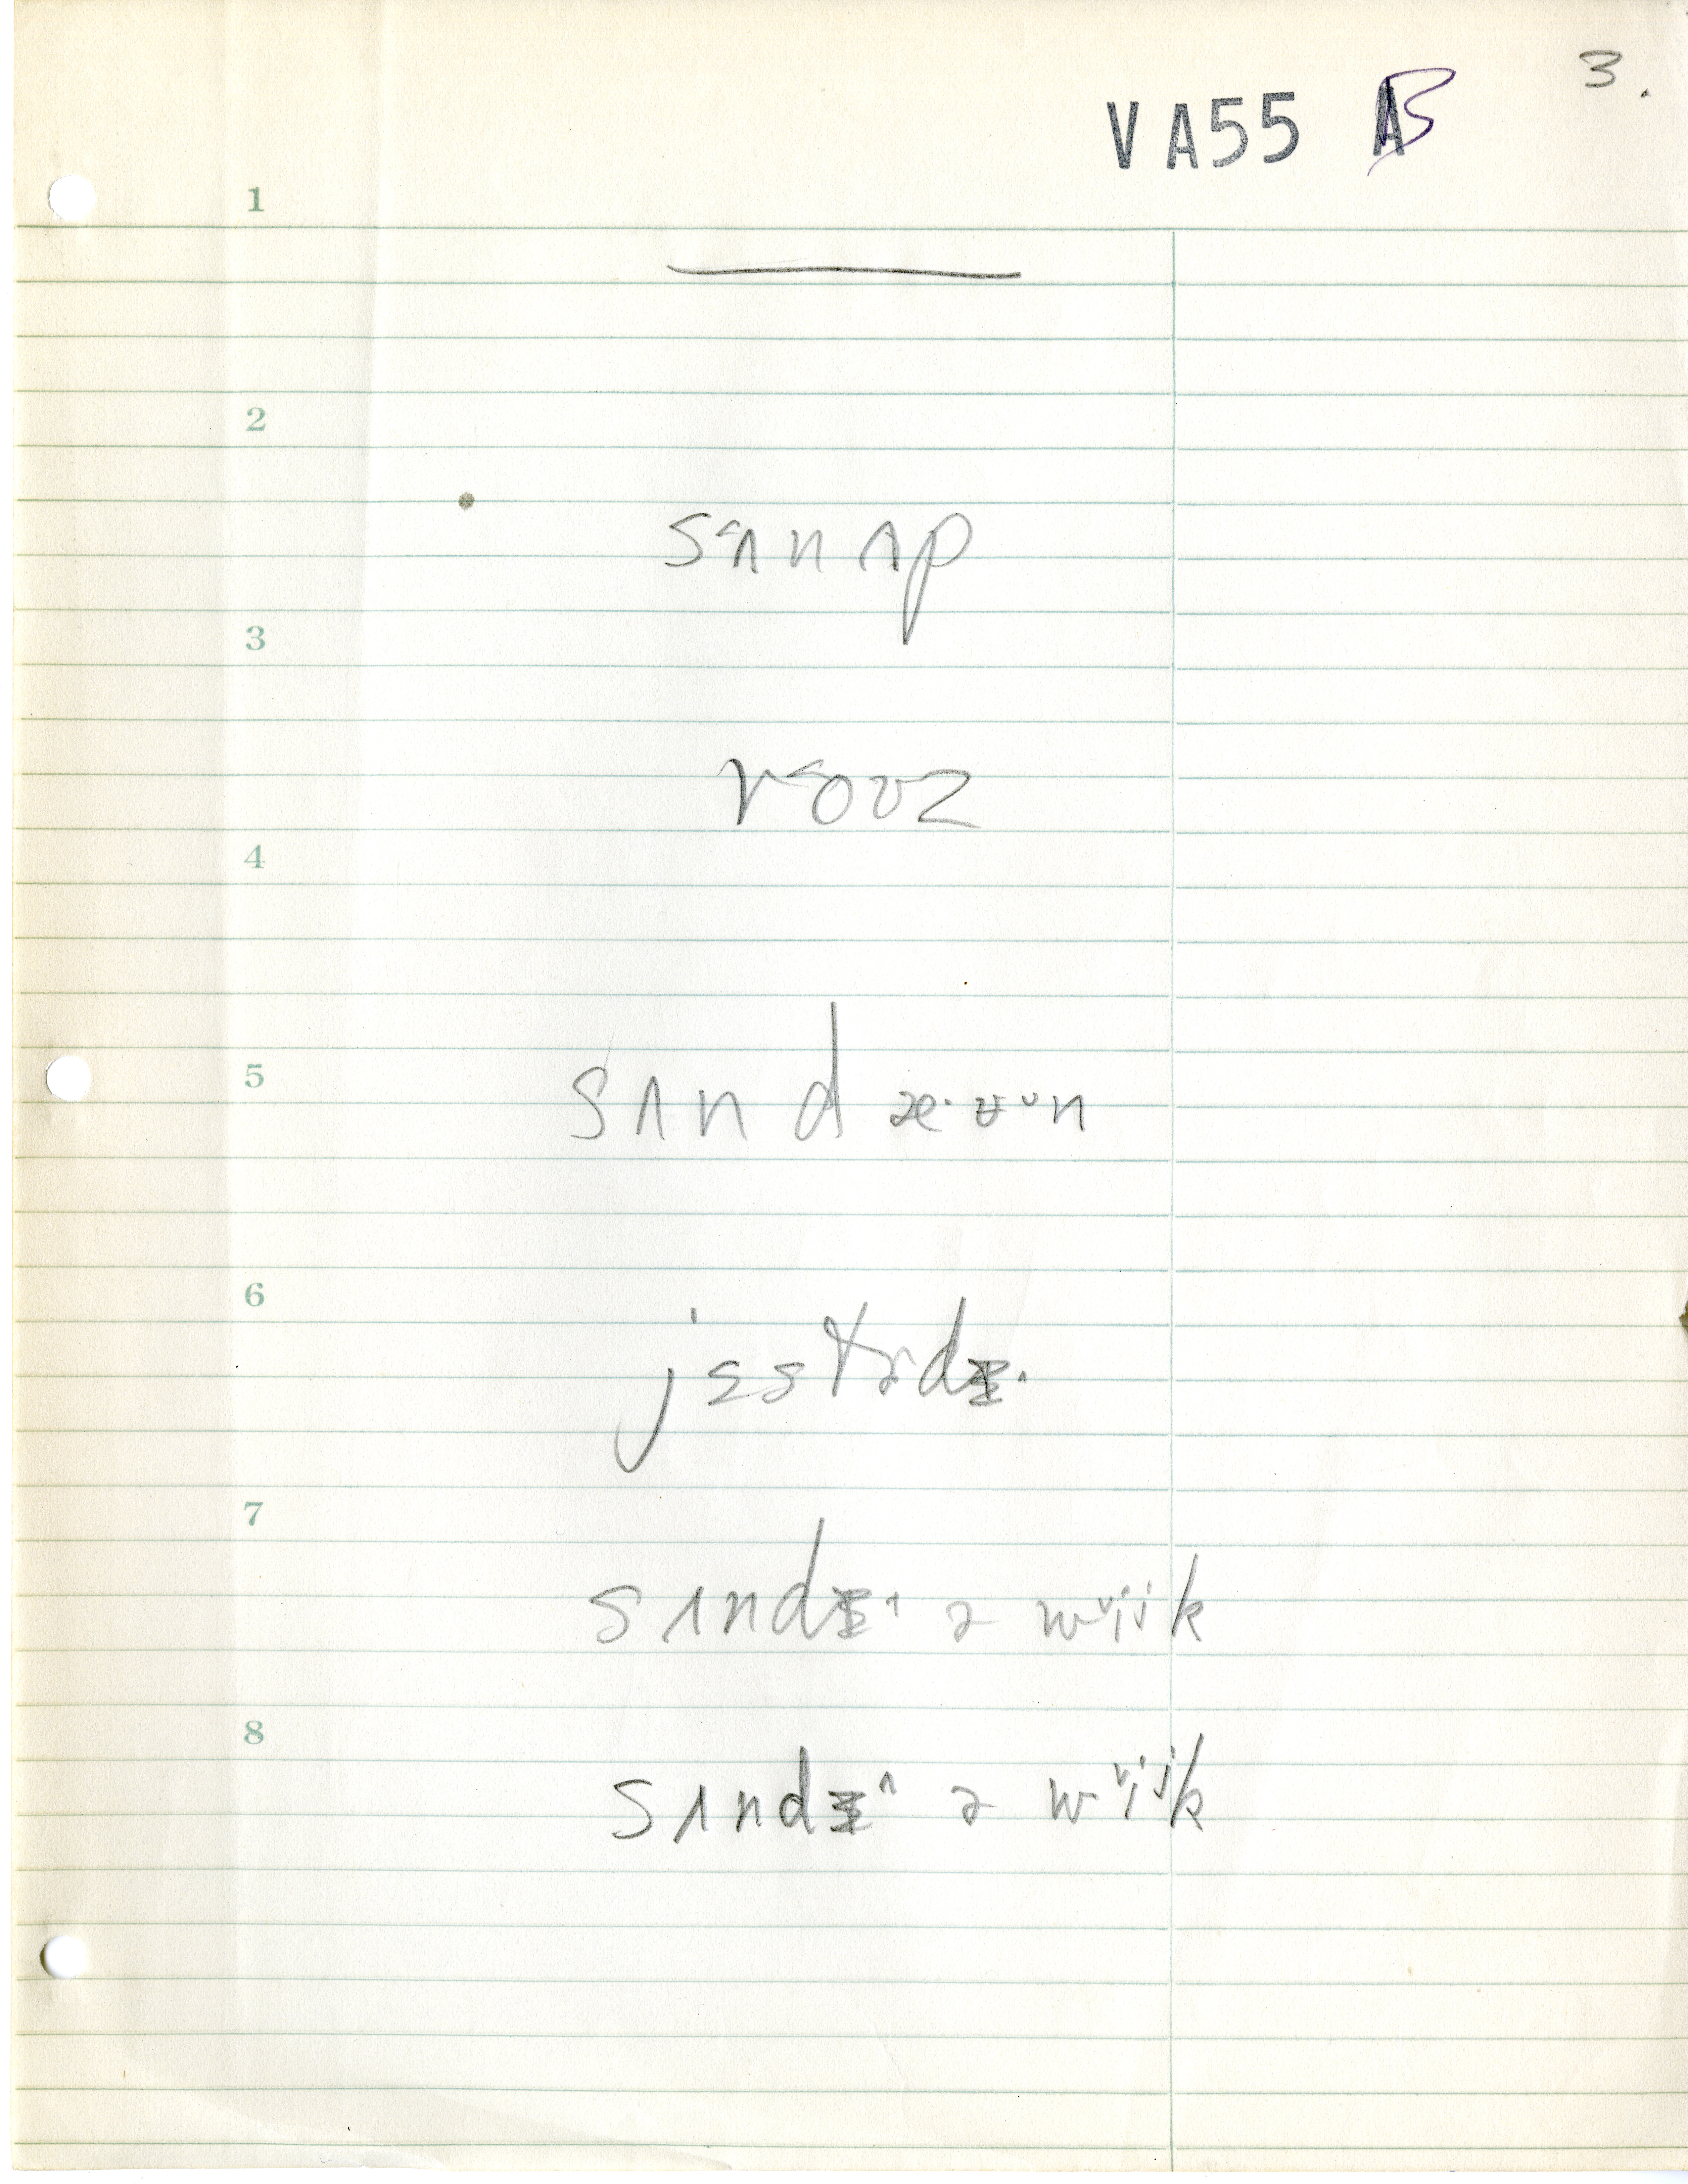 3.
VA55 B
1
2
sʌ˂nʌp
3
r˂oʊz
4
5
sʌnd æ· ʉ ˇn
6
jɛstɚdɪ^
7
sʌndɪ^ ə wˇijk
8
sʌndɪ^ ə wˇijk